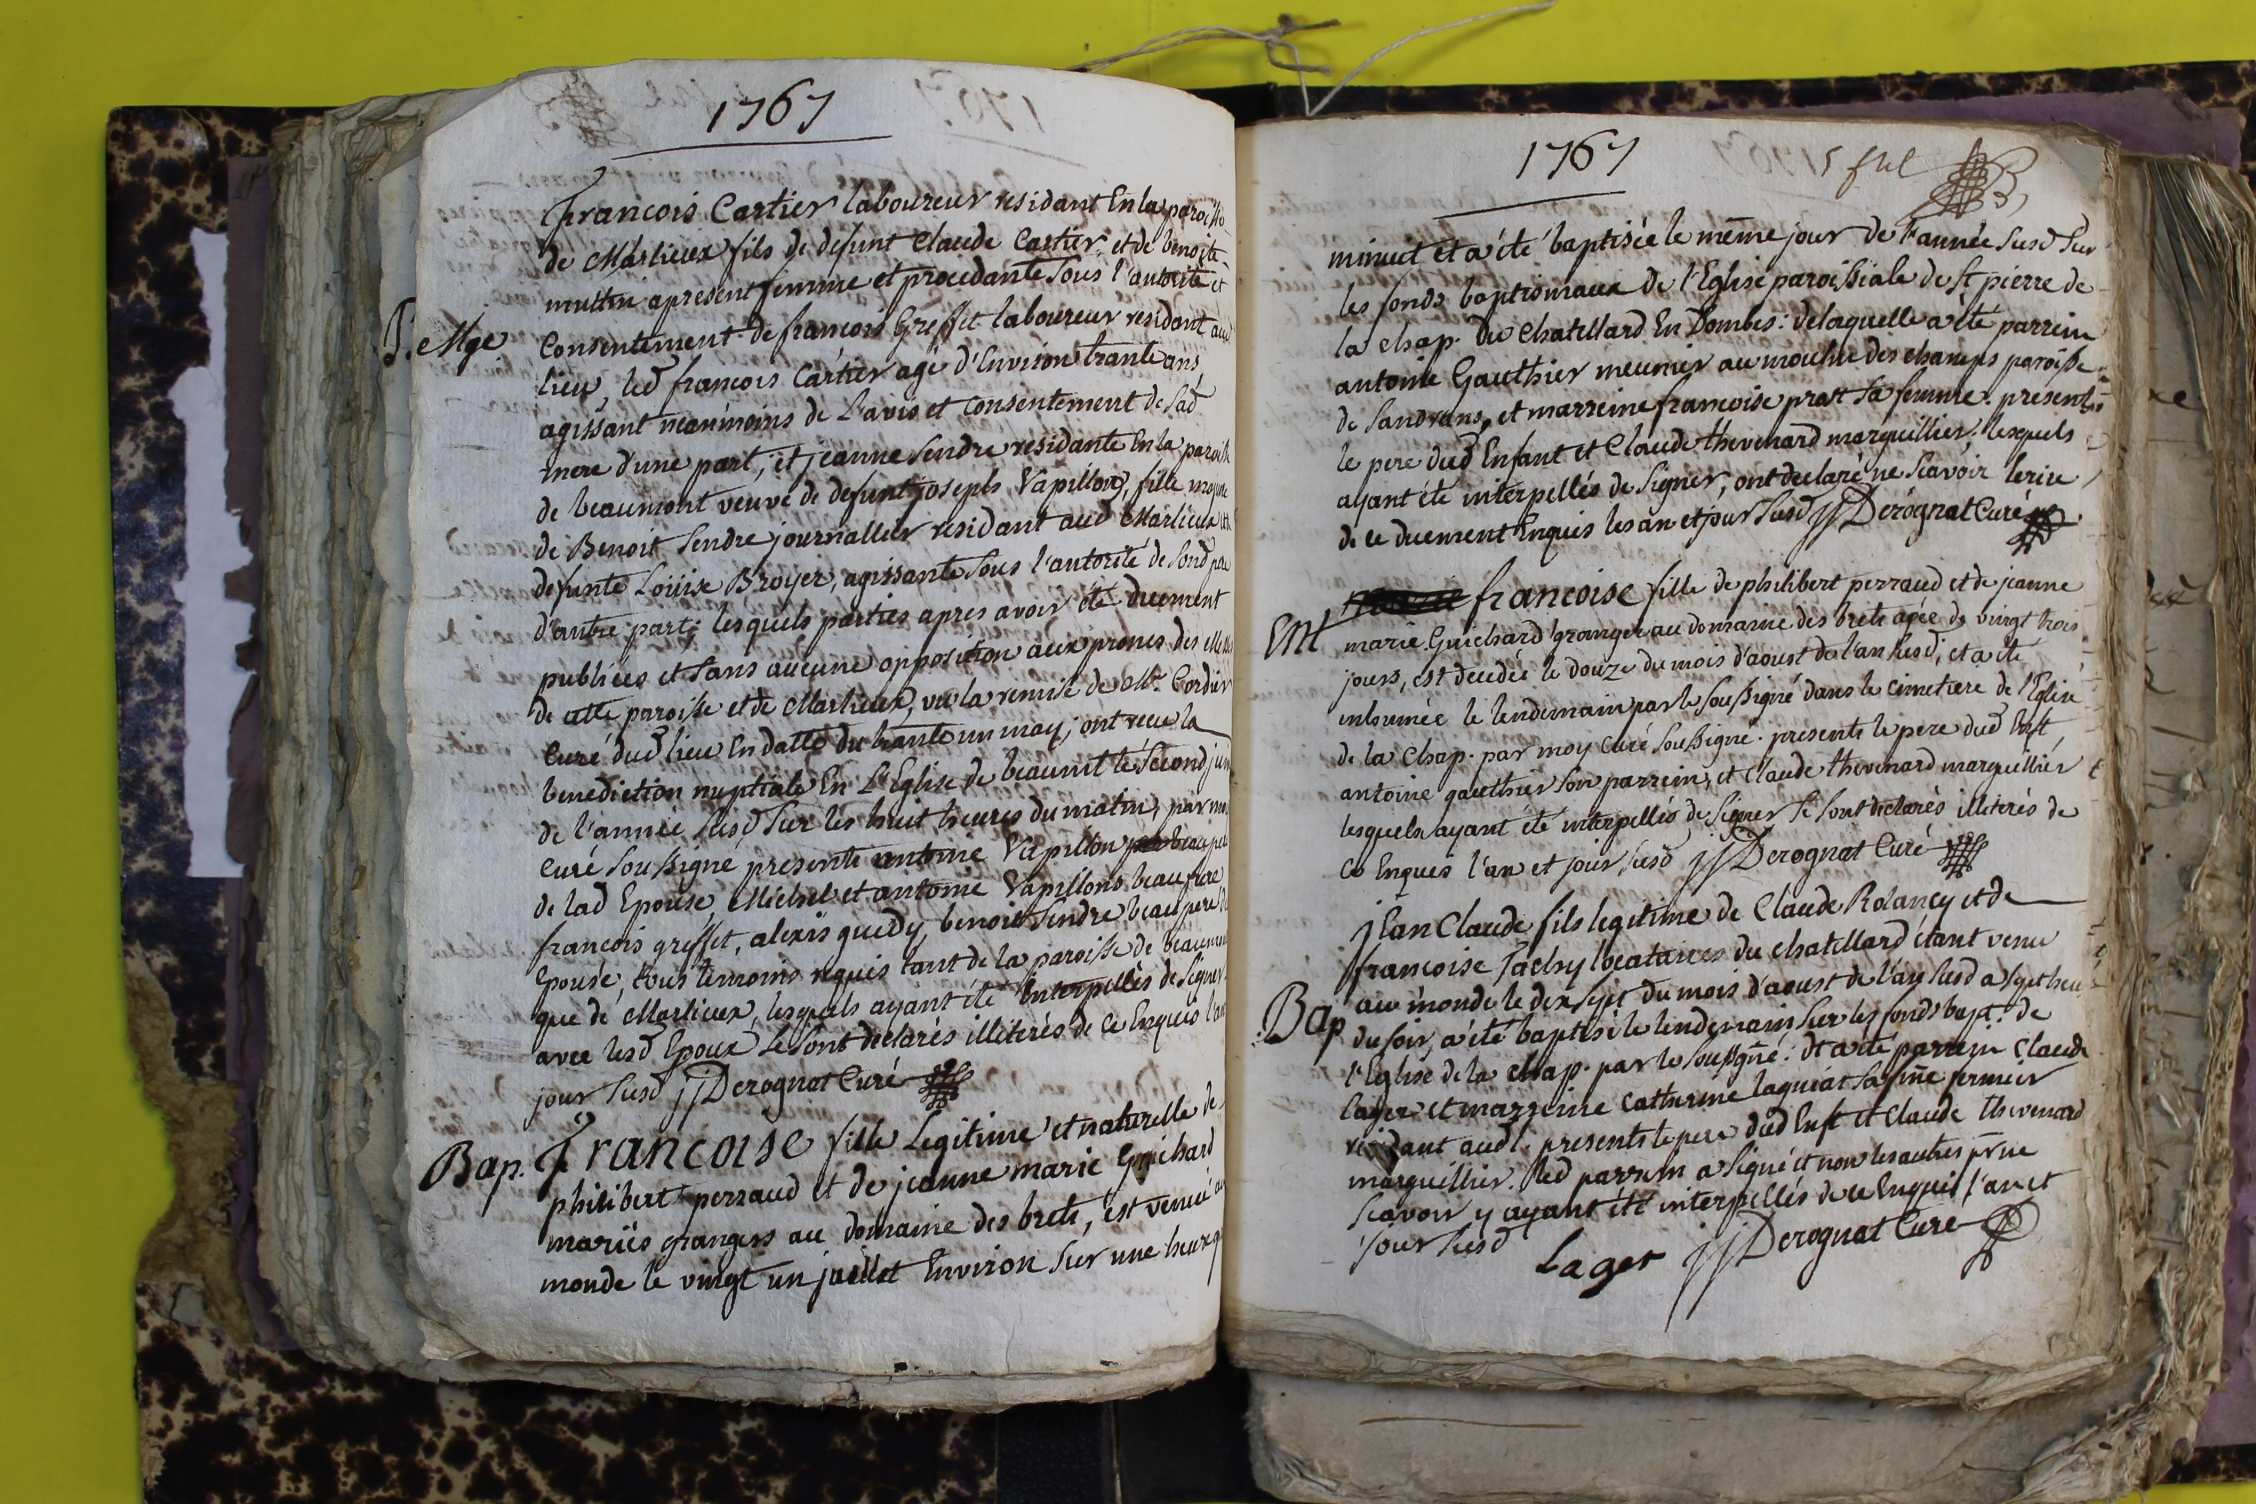 1767
francois Cartier laboureur residant En la paroisse
de Marlieux fils de defunt Claude Cartier, et de benoite
muttin apresent femme et procedante sous l'autorité et
P. Mge
Consentement de francois Greffet laboureur residant aud
lieu, led francois Cartier agé d'Environ trante ans,
agissant neanmoins de l'avis et consentement de sad
mere d'une part, et jeanne Sendre residante En la paroisse
de beaumont veuve de defunt joseph Vapillon, fille
de Benoit Sendre journallier residant aud Marlieux et
defunte Louise Broyer, agissante sous l'autorité de sond pere
d'autre part; lesquels parties apres avoir été duement
publiées et sans aucune opposition aux prones des Messes
de cette paroisse et de Marlieux, vu la remise de Mr. Cordier
Curé dud lieu En datte du trante un may; ont recu la
benediction nuptiale En L'Eglise de beaumt le second juin
de l'année susd sur les huit heures du matin, par moi
curé soussigné, presents antoine Vapillon beaupere
de lad Epouse, Michel et antoine Vapillons beaufrere
francois greffet, alexis guedy, benoit Sendre beaupere
Epouse, tous temoins requis tant de la paroisse de beaumont
que de Marlieux, lesquels ayant été Interpellés de signer
avec lesd Epoux se sont declarés illiterés de ce Enquis l'an
jour susd jj Derognat Curé
Bap. Francoise fille Legitime et naturelle de
philibert perraud et de jeanne marie Guichard
mariés grangers au domaine des brets, est venue au
monde le vingt un juillet Environ sur une heure
1767
5 ful
minuit et a été baptisée le même jour de l'année susd sur
les fonds baptismaux de l'Eglise paroissiale de St pierre de
la chap. du Chatillard En Dombes: de laquelle a été parrein
antoine Gauthier meunier au moulin des champs paroisse
de Sandrans, et marreine francoise prat sa femme. presents
le pere dud Enfant et Claude thevenard marguillier. lesquels
ayant été interpellés de signer, ont declaré ne scavoir
de ce duement Enquis les an et jour susd jj Derognat Curé
Ent
francoise fille de philibert perraud et de jeanne
marie Guichard granger au domaine des brets agée de vingt trois
jours, est decedée le douze du mois d'aoust de l'an susd, et a été
inhumée le lendemain par le soussigné dans le cimetiere de l'Eglise
de la chap. par moy curé soussigné. presents le pere dud Enft
antoine gauthier son parrein, et Claude thevenard marguillier
lesquels ayant été interpellés de signer se sont declarés illiterés de
ce Enquis l'an et jour susd jj Derognat Curé
jean Claude fils legitime de Claude Rolancy et de
francoise Tachy locataires du chatellard étant venu
au monde le dix sept du mois d'aoust de l'an susd a sept heu
Bap
du soir, a été baptisé le lendemain sur les fonds bapt. de
l'Eglise de la chap. par le soussigné: et a été parrein Claude
lager et marreine catherine laguiat sa fme fermier
residant aud l. presents le pere dud Enft et Claude thevenard
marguillier. led parrein a signé et non les autres pr ne
scavoir y ayant été interpellés de ce Enquis l'an et
jour susd Lager jj Derognat Curé